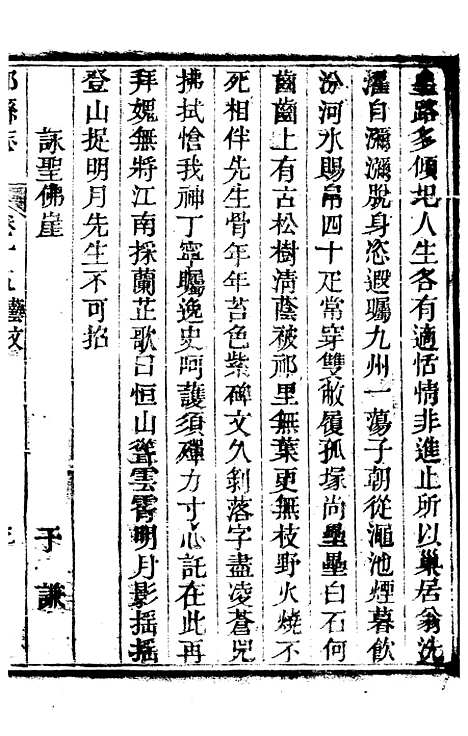 路多傾圯人生各有適恬情非進止所以巢居翁洗
濯自瀰瀰脫身恣遐矚九州一蕩子朝從澠池煙暮飲
汾河水賜帛四十疋常穿雙敝履孤塚尚壘壘白石何
齒齒上有古松樹淸蔭被祁里無葉更無枝野火燒不
死相伴先生骨年年苔色紫碑文久剝落字盡凌蒼兕
拂拭愴我神丁寧矚逸史呵護須殫力寸心託在此再
拜媿無將江南採蘭芷歌曰恒山聳雲霄明月影搖搖
登山捉明月先生不可招
詠聖佛崖　于謙
縣志　卷十五　藝文